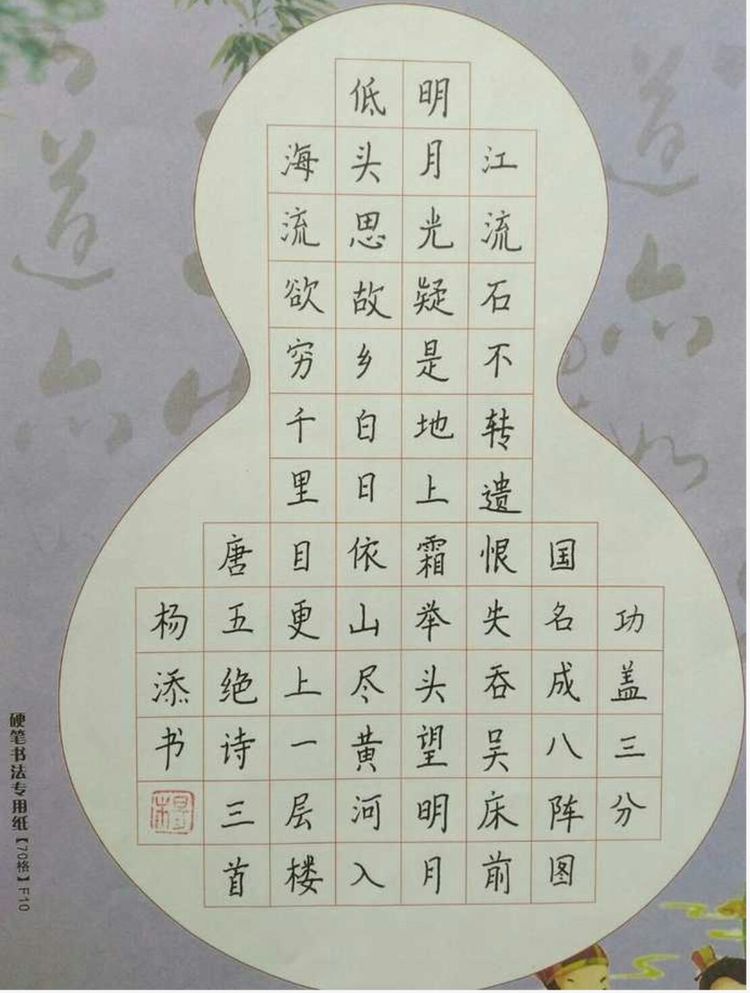 功盖三分
国名成八阵图
江流石不转遗恨失吞吴床前
明月光疑是地上霜举头望明月
低头思故乡白日依山尽黄河入
海流欲穷千里目更上一层楼
唐五绝诗三首
杨添书
硬笔书法专用纸【70格】F10